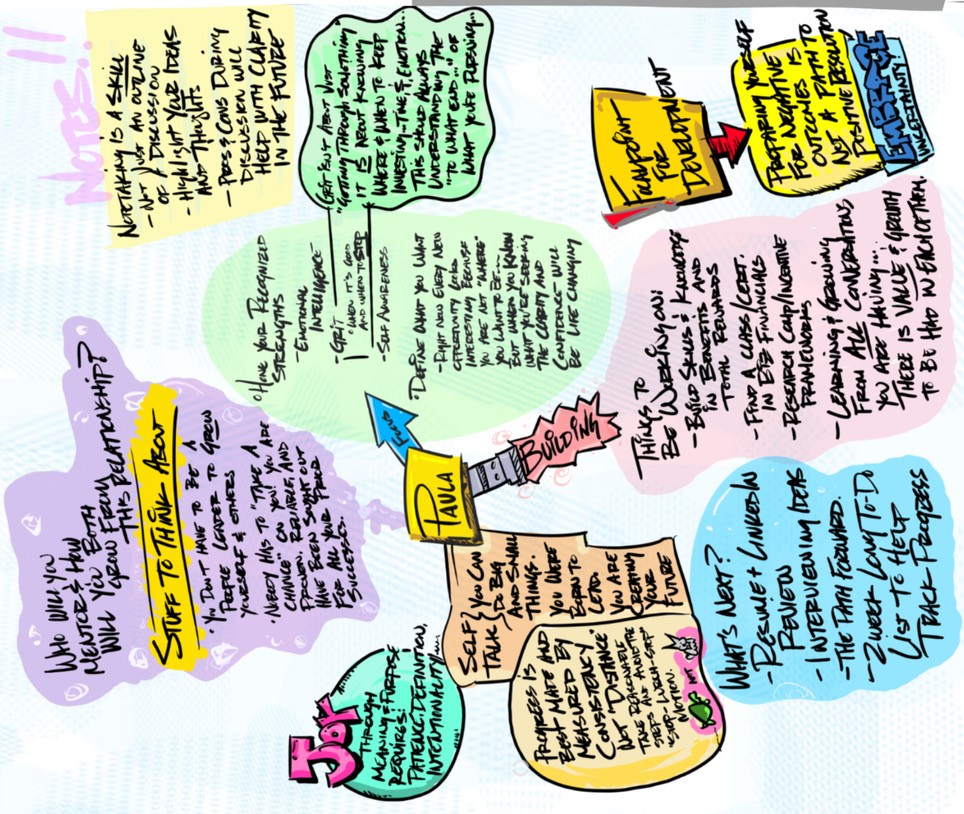 NOTES!!
NOTETAKING IS A SKILL
- NOT JUST AN OUTLINE
OF A DISCUSSION
- HIGHLIGHT YOUR IDEAS
AND THOUGHTS
- PROS & CONS DURING
DISCUSSION WILL
HELP WITH CLARITY
IN THE FUTURE
GRIT ISN'T ABOUT JUST
"GETTING THROUGH SOMETHING"
IT IS ABOUT KNOWING
WHERE & WHEN TO KEEP
INVESTING TIME & EMOTION.
THIS SHOULD ALWAYS
UNDERSTANDING THE
"TO WHAT END..." OF
WHAT YOU'RE PURSUING...
FOR
DEVELOPMENT
PREPARING YOURSELF
FOR NEGATIVE
OUTCOMES IS
NOT A PATH TO
POSITIVE RESOLUTION
EMBRACE
UNCERTAINTY
WHO WILL YOU
MENTOR & HOW
WILL YOU BOTH
GROW FROM
THIS RELATIONSHIP?
STUFF TO THINK ABOUT
• YOU DON'T HAVE TO BE A
PEOPLE LEADER TO GROW
YOURSELF & OTHERS
• NOBODY HAS TO "TAKE A
CHANCE ON YOU" YOU ARE
PROVEN, RELIABLE, AND
HAVE BEEN SOUGHT OUT
FOR ALL YOUR PRIOR
SUCCESSES.
• HAVE YOUR RECOGNIZED
STRENGTHS
- EMOTIONAL
INTELLIGENCE
- GRIT
"WHEN IT'S GOOD
AND WHEN TO STOP
- SELF AWARENESS
• DEFINE WHAT YOU WANT
- RIGHT NOW EVERY NEW
OPPORTUNITY LOOKS
INTERESTING BECAUSE
YOU ARE NOT "WHERE"
YOU WANT TO BE...
BUT WHEN YOU KNOW
WHAT YOU'RE SEEKING
THE CLARITY AND
CONFIDENCE WILL
BE LIFE CHANGING
PAULA
BUILDING
THINGS TO
BE WORKING ON:
- BUILD SKILLS & KNOWLEDGE
IN BENEFITS AND
TOTAL REWARDS
- FIND A CLASS/CERT.
IN BIZ FINANCIALS
- RESEARCH COMP/INCENTIVE
FRAMEWORKS
- LEARNING & GROWING
FROM ALL CONVERSATIONS
YOU ARE HAVING...
THERE IS VALUE & GROWTH
TO BE HAD IN EACH OF THEM.
JOY
THROUGH
MEANING & PURPOSE
REQUIRES:
PATIENCE, DEFINITION,
INTENTIONALITY
SELF
TALK
YOU CAN
DO BIG
AND SMALL
THINGS.
YOU WERE
BORN TO
LEAD.
YOU ARE
CREATING
YOUR
FUTURE
PROGRESS IS
BEST MADE AND
MEASURED BY
CONSISTENCY
NOT DISTANCE
TAKE REASONABLE
STEPS AND AUDIT
STEPS
"STOP-
MOTION.
NOT
WHAT'S NEXT?
- RESUME & LINKEDIN
REVIEW
- INTERVIEWING IDEAS
- THE PATH FORWARD.
- 2 WEEK LONG TO-DO
LIST TO HELP
TRACK PROGRESS